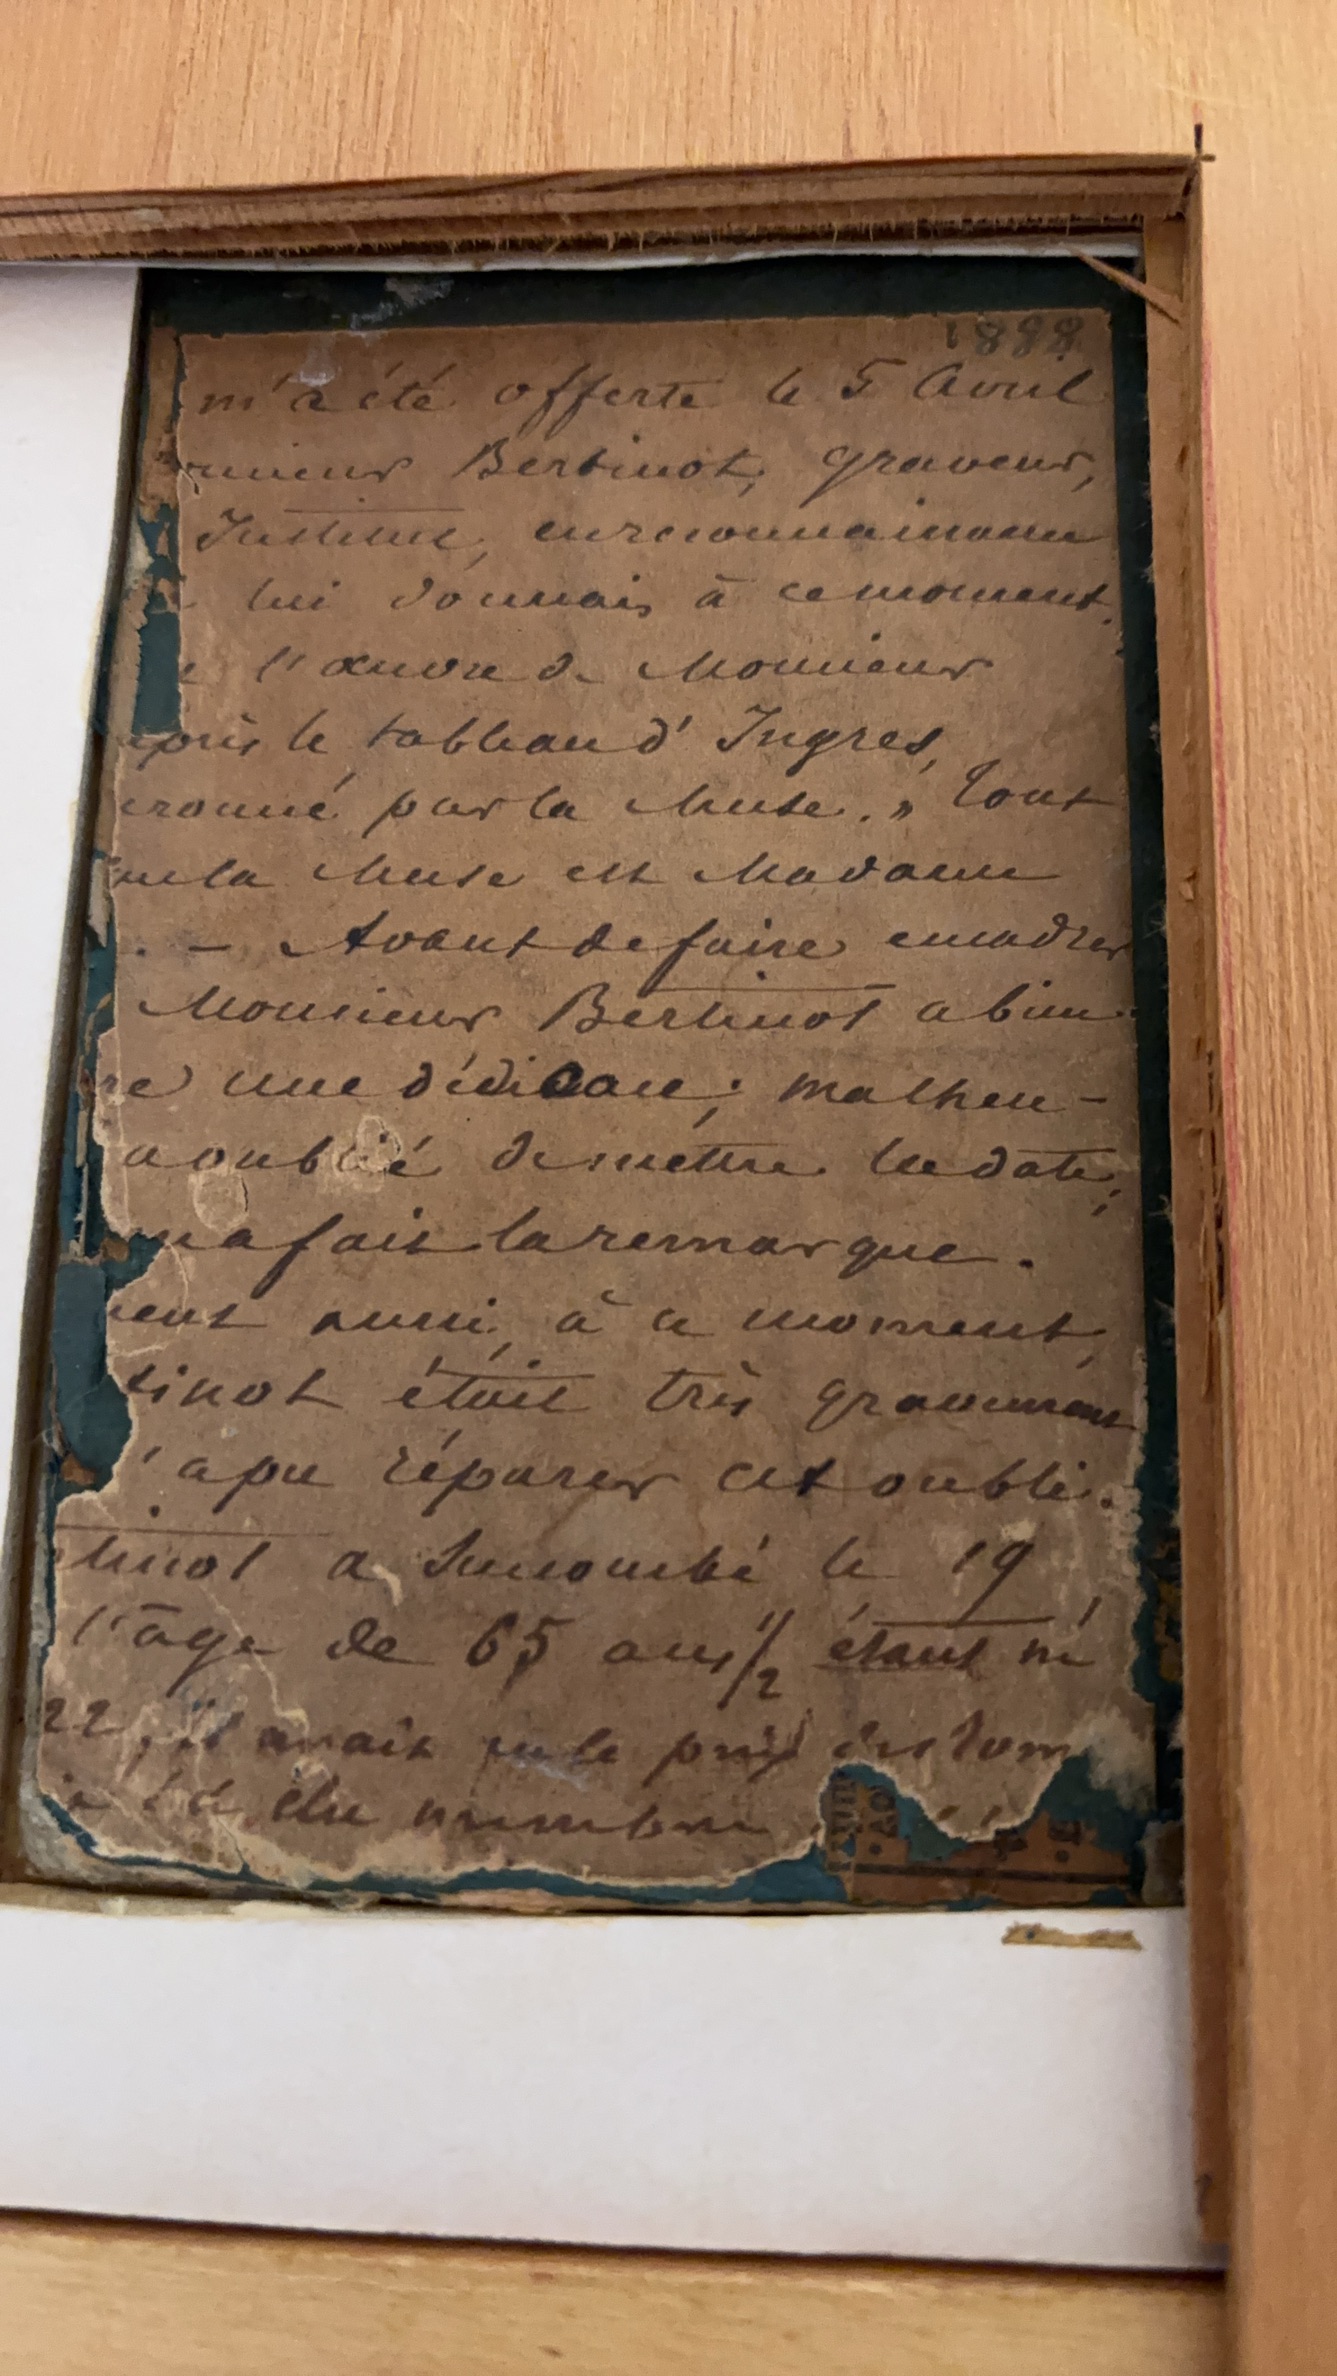 1888
m'a été offerte le 5 Avril
Bertinot, graveur,
Institut, en reconnaissance
lui donnais à ce moment,
l'œuvre de Monsieur
près le tableau d'Ingres,
ronné par la Muse. » Tout
la Muse est Madame
. — Avant de faire encadrer
Monsieur Bertinot a bien
re une dédicace; malheu-
a oublié de mettre la date,
m'a fait la remarque.
ment aussi, à ce moment,
tinot était très gravement
'a pu réparer cet oubli.
tinot a succombé le 19
l'âge de 65 ans 1/2 étant né
22, il avait eu le prix de Rom
été élu membre